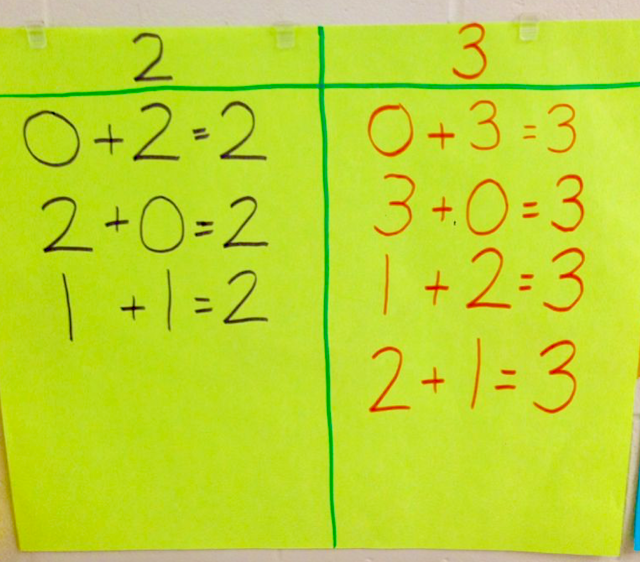 2
0+2=2
2+0=2
1+1=2
3
0+3=3
3+0=3
1+2=3
2+1=3